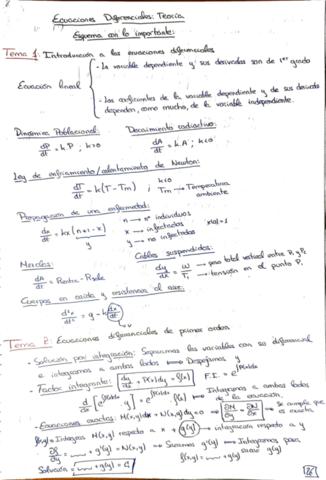 Ecuaciones Diferenciales: Teoría
Esquema con lo importante:
Tema 1: Introducción a las ecuaciones diferenciales
Ecuación lineal
- La variable dependiente y sus derivadas son de 1er grado
- Los coeficientes de la variable dependiente y de sus derivadas
dependen, como mucho, de la variable independiente.
Dinámica Poblacional: Decaimiento radiactivo:
dP/dt = k.P ; k>0 dA/dt = k.A ; k<0
Ley de enfriamiento/calentamiento de Newton:
dT/dt = k(T - Tm) ; k<0 Tm → Temperatura ambiente
Propagación de una enfermedad:
dx/dt = kx(n+1-x) y
n → nº individuos
x → infectados x(0)=1
y → no infectados
Mezclas: Cables suspendidos:
dA/dt = Rentra - Rsale dy/dx = W/T1 → peso total vertical entre P1 y P2
→ tensión en el punto P1
Cuerpos en caída y resistencia al aire:
Tema 2: Ecuaciones diferenciales de primer orden
- Solución por integración: Separamos las variables con su diferencial
e integramos a ambos lados → Despejamos y
- Factor integrante: dy/dx + P(x)y = f(x) F.I. = e^∫P(x)dx
d/dx [e^∫P(x)dx y] = e^∫P(x)dx f(x) → Integramos a ambos lados
de la ecuación.
- Ecuaciones exactas: M(x,y)dx + N(x,y)dy = 0 → ∂M/∂y = ∂N/∂x → se cumple que es exacta
f(x,y) = Integras M(x,y) respecto a x + g(y) → integración respecto a y
Solución